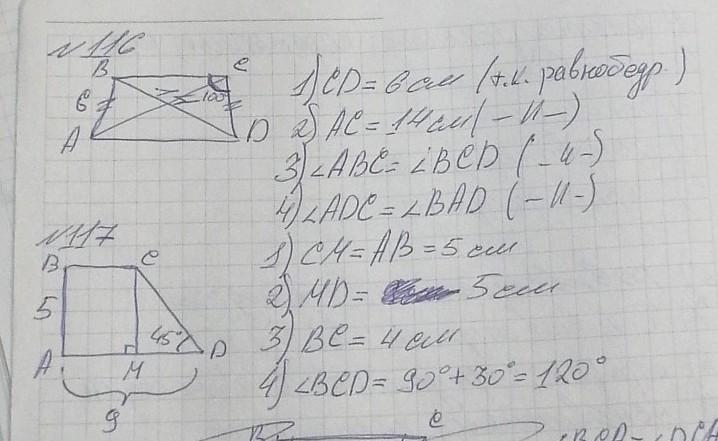 №116
B C
6 100°
A D
1) CD = 6 см (т.к. равнобедр.)
2) AC = 14 см (-II-)
3) ∠ABC = ∠BCD (-II-)
4) ∠ADC = ∠BAD (-II-)
№117
B C
5 45°
A M D
9
1) CM = AB = 5 см
2) MD = 5 см
3) BC = 4 см
4) ∠BCD = 90° + 30° = 120°
B C